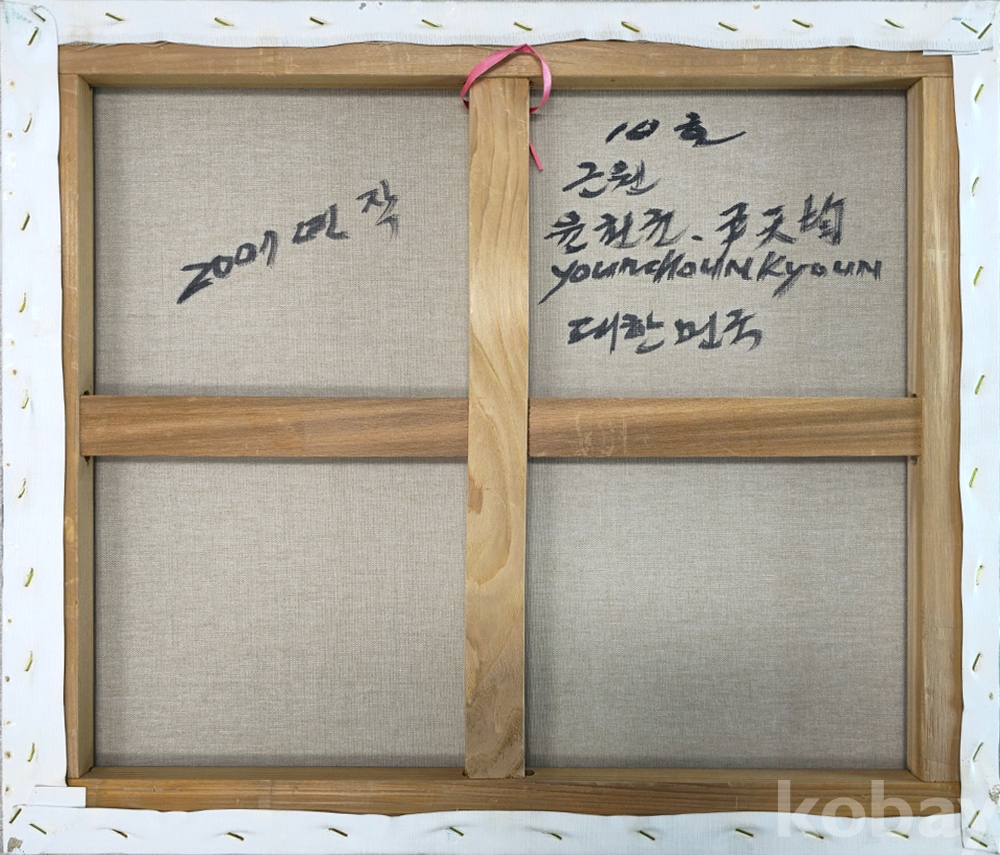 2007 년 작
10 호
근원
윤천균. 尹天均
YOUN CHOUN KYOUN
대한민국
kobay